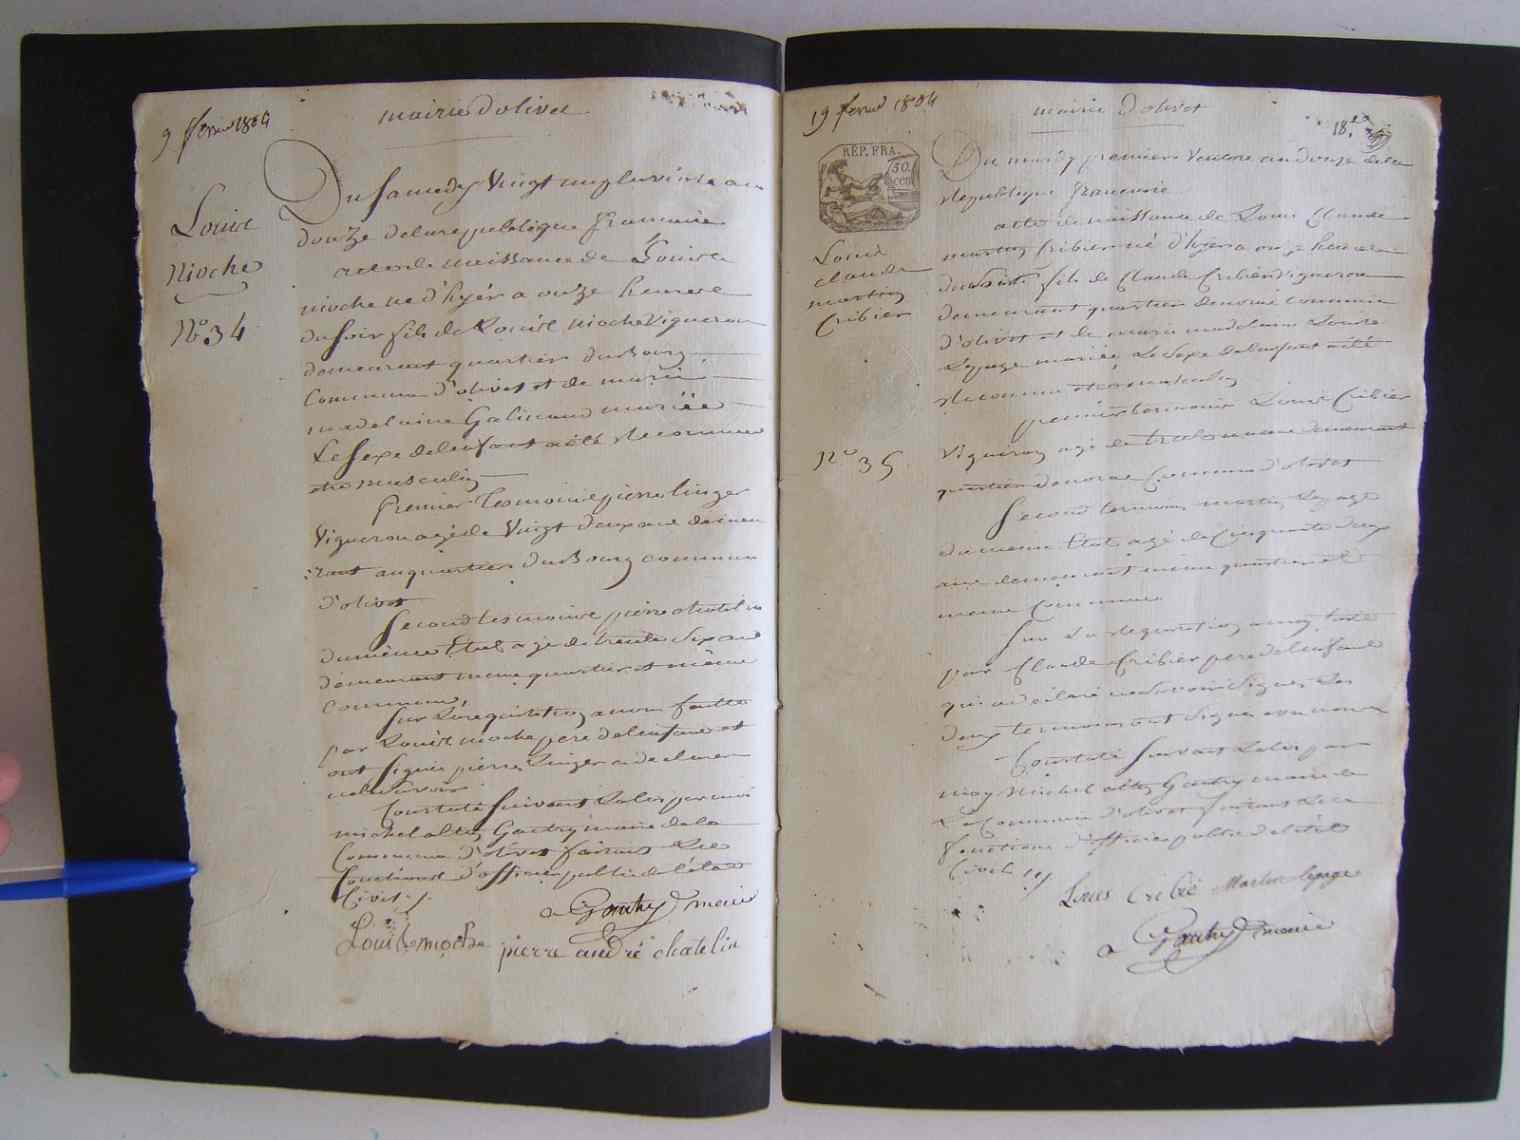 9 fevrier 1804
mairie d'olivet
Louise
nioche
No 34
Du Samedy Vingt un pluviose an
douze de la republique francaise
acte de naissance de Louis
nioche né d'hyer a onze heures
du soir fils de Louis nioche vigneron
demeurant quartier du Bourg
Commune d'olivet et de marie
madelaine Galineau mariée
Le Sexe de lenfant a été Reconnue
etre masculin
Premier temoin pierre linger
Vigneron agé de Vingt deux ans demeu
rant au quartier du Bourg commune
d'olivet
Second tesmoin pierre chatelin
du même Etat agé de trente six ans
demeurant meme quartier et même
commune,
Sur La requisition a nous faitte
par Louis nioche pere de lenfant et
ont signé pierre Linger a declarer
ne Savoir
Constaté Suivant La loi par moi
michel altin Gautry maire de la
Commune d'olivet faisant Les
fonctions d'officier public de l'état
Civil
a Gautry maire
Louis nioche pierre andré chatelin
19 fevrier 1804
mairie d'olivet
18.
REP. FRA.
50.
cen
Louis
claude
martin
Cribier
No 35
Du mardy premier Ventose an douze de la
Republique francaise
acte de naissance de Louis Claude
martin Cribier né d'hyer a onze heures
du soir fils de Claude Cribier Vigneron
demeurant quartier de commune
d'olivet et de marie madelaine Louise
Lepage mariée Le Sexe de lenfant a été
Reconnu etre masculin
premier temoin Louis Cribier
Vigneron agé de trente ans demeurant
quartier Commune d'olivet
Second temoin martin Lepage
du meme Etat agé de Cinquante deux
ans demeurant même quartier et
meme Commune
Sur La Requisition a moy faite
par Claude Cribier pere de lenfant
qui a déclaré ne Savoir Signer Les
deux temoins ont Signé avec nous
Constaté Suivant La loi par
moy Michel altin Gautry maire de
La Commune d'olivet faisant Les
fonctions d'officier public de l'état
Civil
Loues Cribié Martin lepage
a Gautry maire